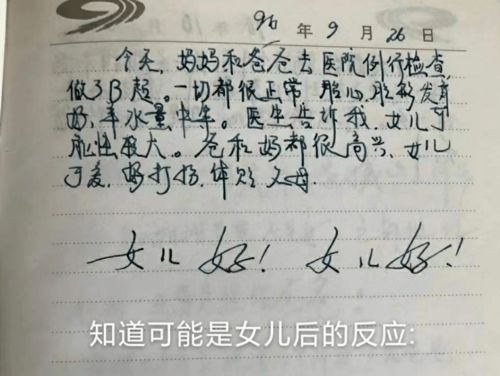 96年9月26日
今天，妈妈和爸爸去医院例行检查，
做了B超。一切都很正常，胎心，胎形发育
好，羊水量中等。医生告诉我，女儿可
能性最大。爸和妈都很高兴，女儿
可爱，好打扮，体贴父母。
女儿好！女儿好！
知道可能是女儿后的反应: